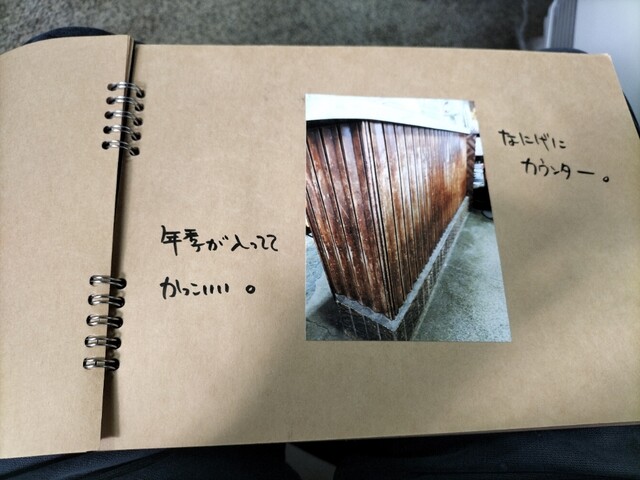 なにげに
カウンター。
年季が入ってて
かっこいいい。